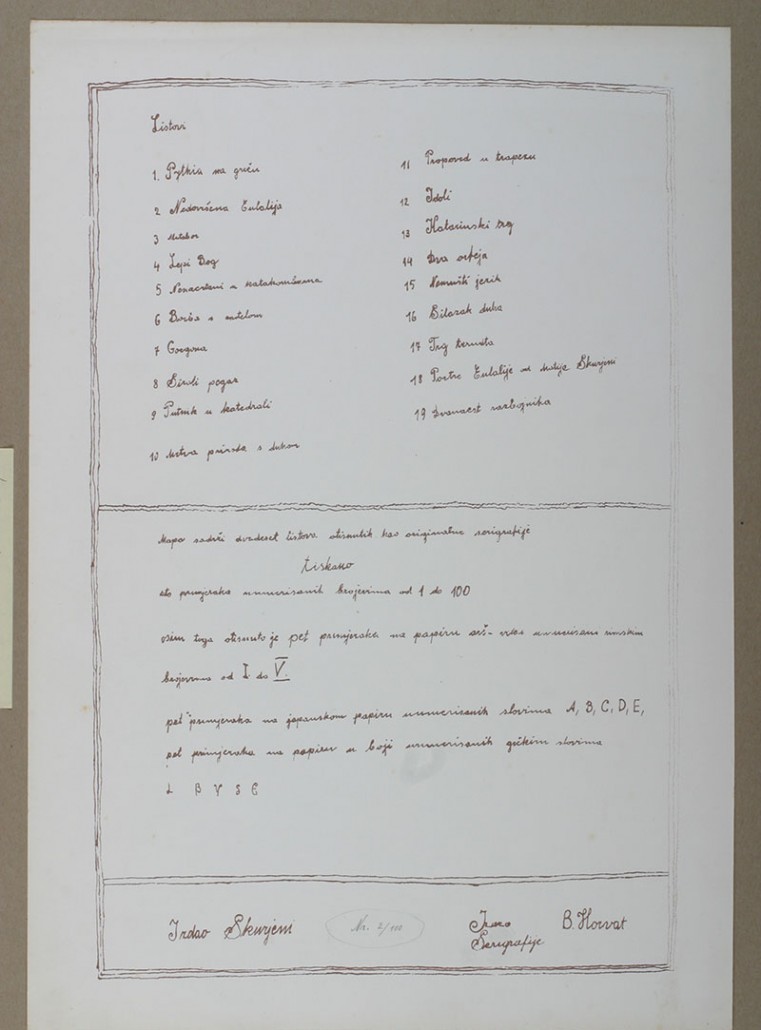 Listovi
1. Pytkia na griču
2 Nedovršena Eulalija
3
4 Lepi Bog
5 u katakombama
6 Borba s
7 Gorgona
8 Široki pogaz
9 Putnik u katedrali
10 Mrtva priroda s
11 Propoved u trapezu
12 Idoli
13 Katarinski trg
14 Dva orfeja
15 Nemušti jezik
16 Silazak duha
17 Trg termita
18 Portre Eulalije od Matije Skurjeni
19 Dvanaest razbojnika
Mapa sadrži dvadeset listova otisnutih kao originalne serigrafije
tiskano
sto primjeraka numerisanih brojevima od 1 do 100
osim toga otisnuto je pet primjeraka na papiru numerisani rimskim
brojevima od I do V.
pet primjeraka na japanskom papiru numerisanih slovima A, B, C, D, E,
pet primjeraka na papiru u boji numerisanih grčkim slovima
Izdao Skurjeni
Nr. 2/100
Izveo
Serigrafije
B. Horvat